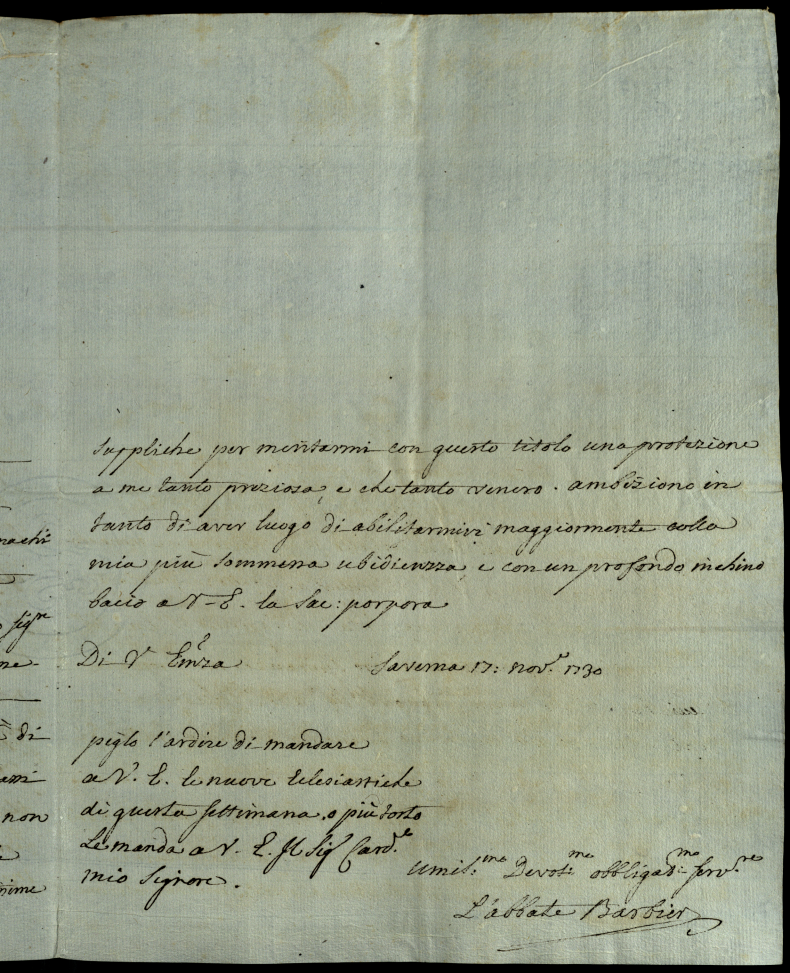 suppliche per meritarmi con questo titolo una protezione
a me tanto preziosa, e che tanto venero. ambiziono in
tanto di aver luogo di abilitarmivi maggiormente colla
mia più sommessa ubidienza, e con un profondo inchino
bacio a V. E. la Sac: porpora
Di V. Emza
Saverna 17: nov.e 1730
piglo l'ardire di mandare
a V. E. le nuove Eclesiastiche
di questa settimana, o più tosto
Le manda a V. E. Il Sigr Card.le
mio Signore.
Umil:mo Devot:mo obbligat:mo serv.re
L'abbate Barbier
nachi
sigre
ne
di
non